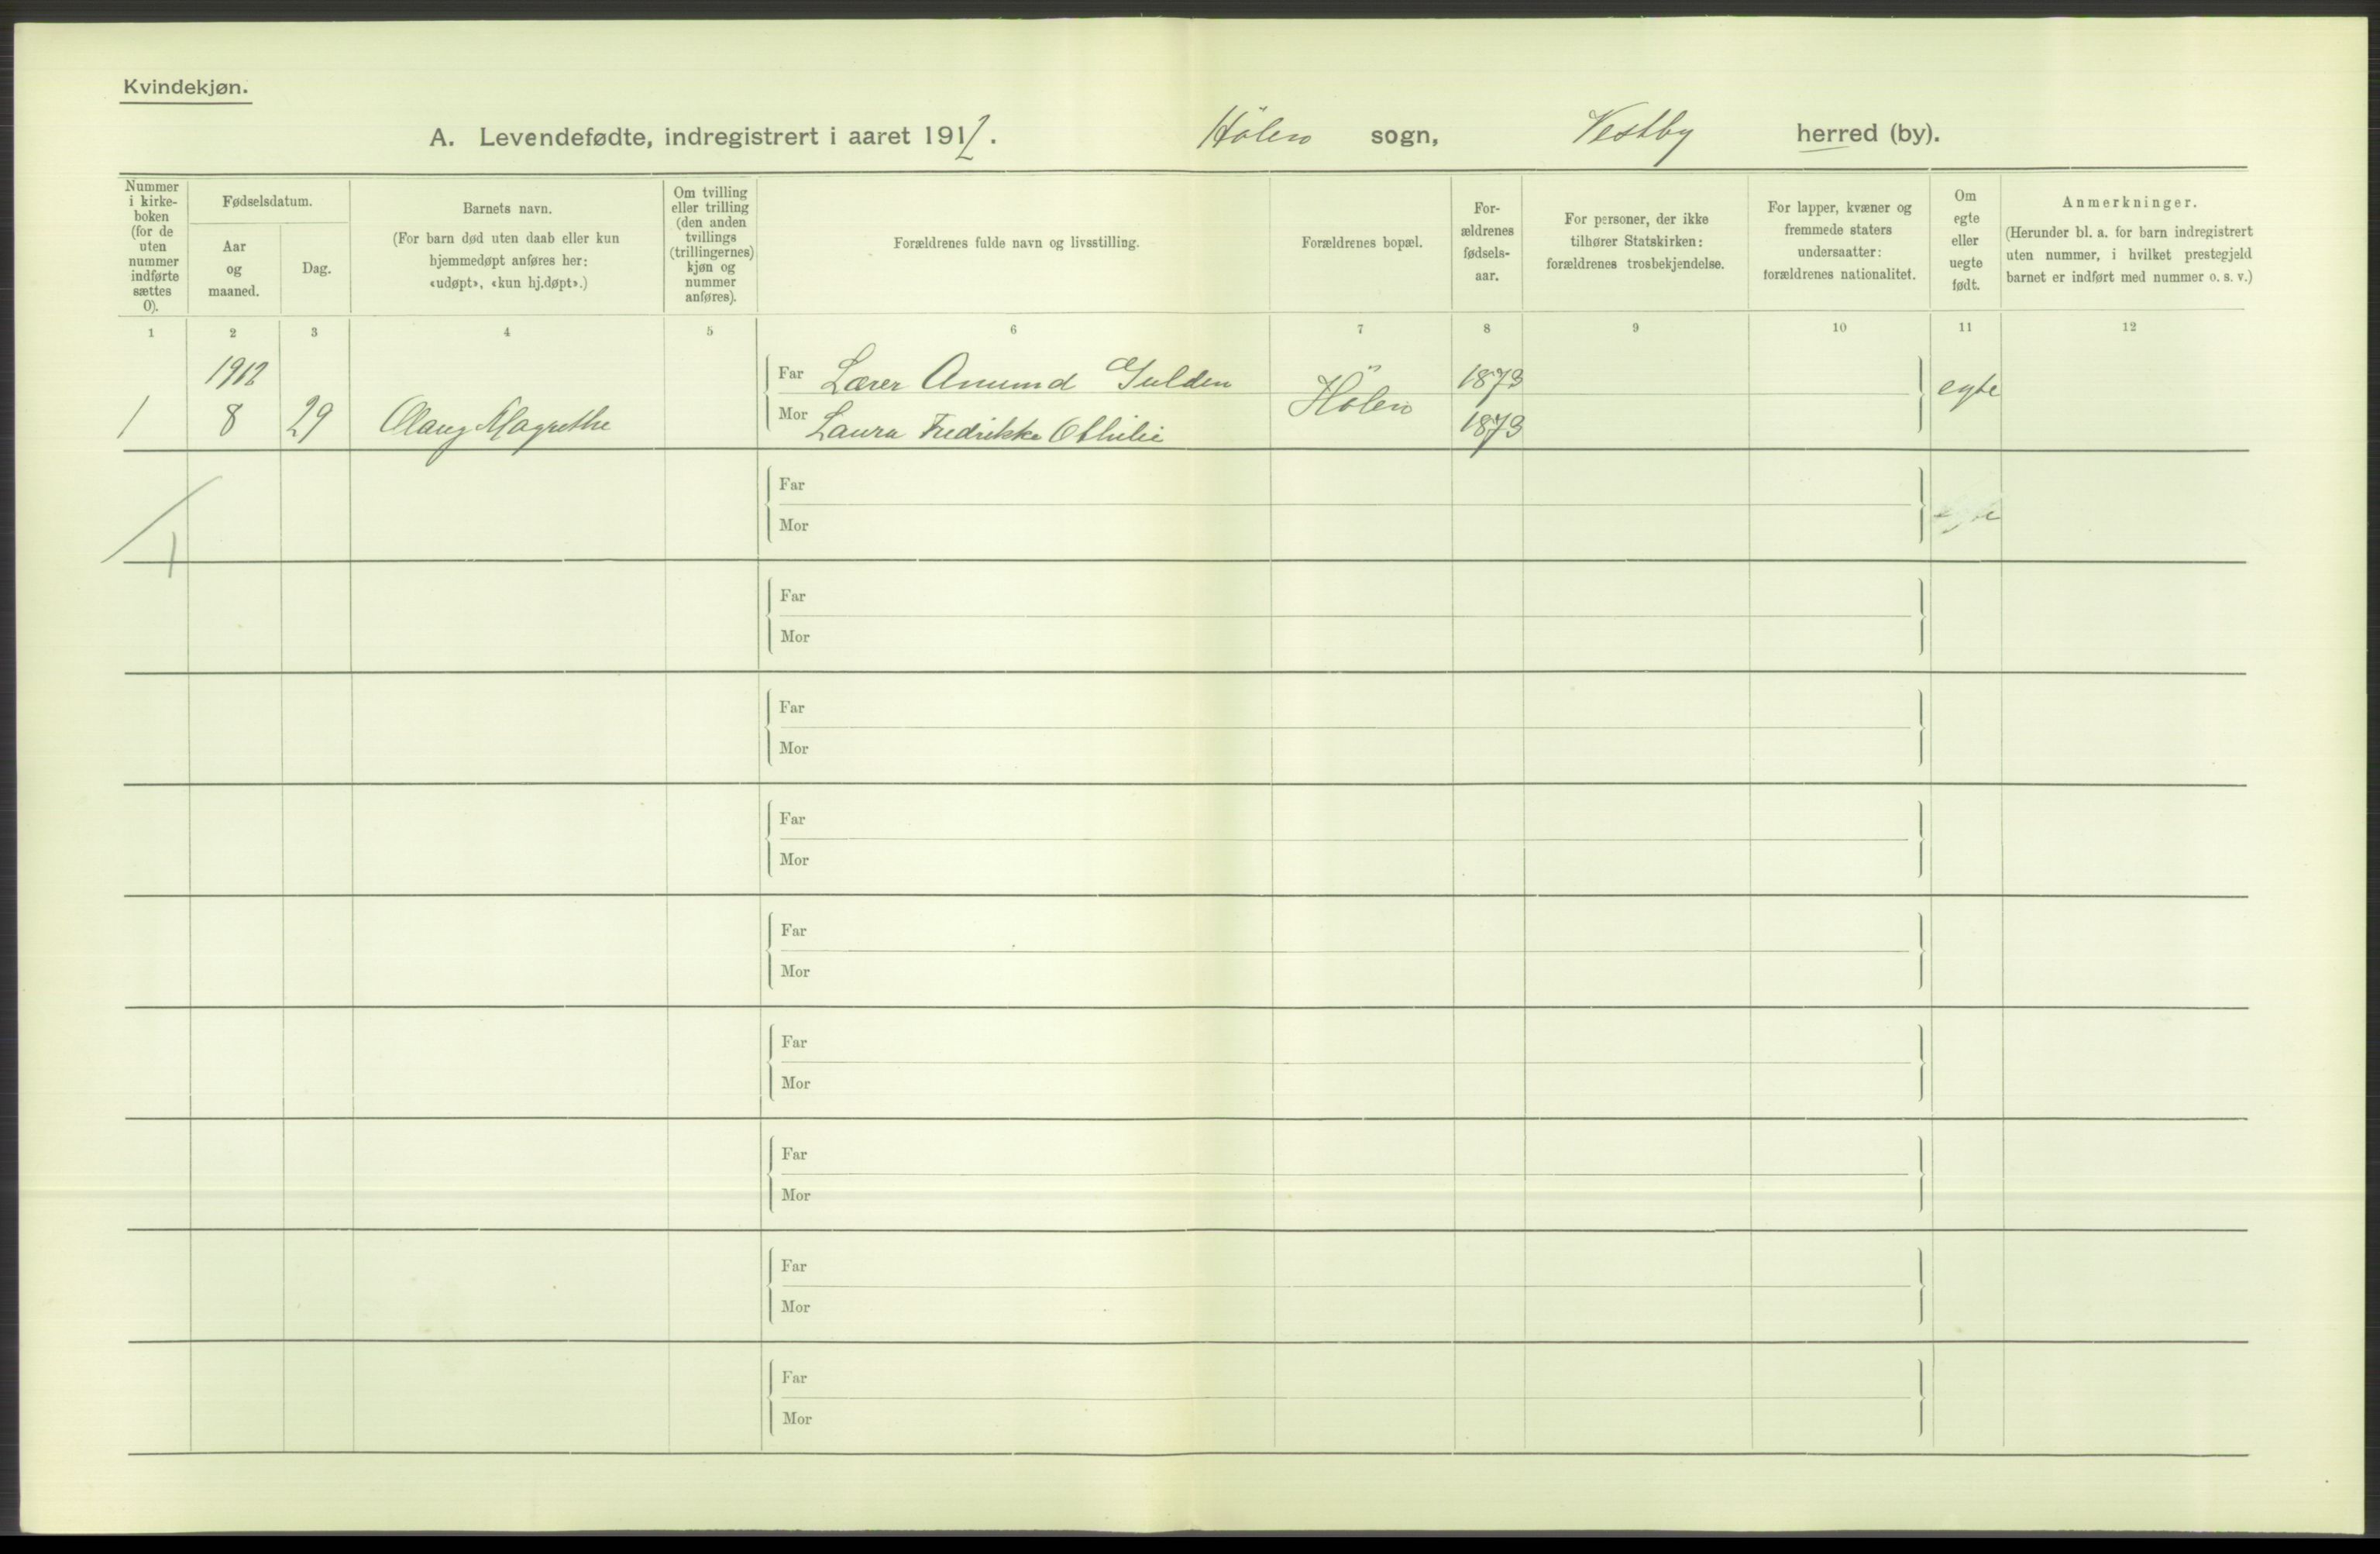 Kvindekjøn.
A. Levendefødte, indregistrert i aaret 1912. Hölen sogn, Vestby herred (by).
Nummer i kirke-boken (for de uten nummer indførte sættes 0).
Fødselsdatum.
Aar og maaned.
Dag.
Barnets navn.
(For barn død uten daab eller kun hjemmedøpt anføres her: «udøpt», «kun hj.døpt».)
Om tvilling eller trilling (den anden tvillings (trillingernes) kjøn og nummer anføres).
Forældrenes fulde navn og livsstilling.
Forældrenes bopæl.
For-ældrenes fødsels-aar.
For personer, der ikke tilhører Statskirken: forældrenes trosbekjendelse.
For lapper, kvæner og fremmede staters undersaatter: forældrenes nationalitet.
Om egte eller uegte født.
Anmerkninger.
(Herunder bl. a. for barn indregistrert uten nummer, i hvilket prestegjeld barnet er indført med nummer o. s. v.)
1 2 3 4 5 6 7 8 9 10 11 12
1912
Far Lærer Amund Gulden Hölen 1873 egte
1 8 29 Olaug Magrethe Mor Laura Fredrikke Othilie 1873
Far
Mor
1
Far
Mor
Far
Mor
Far
Mor
Far
Mor
Far
Mor
Far
Mor
Far
Mor
Far
Mor